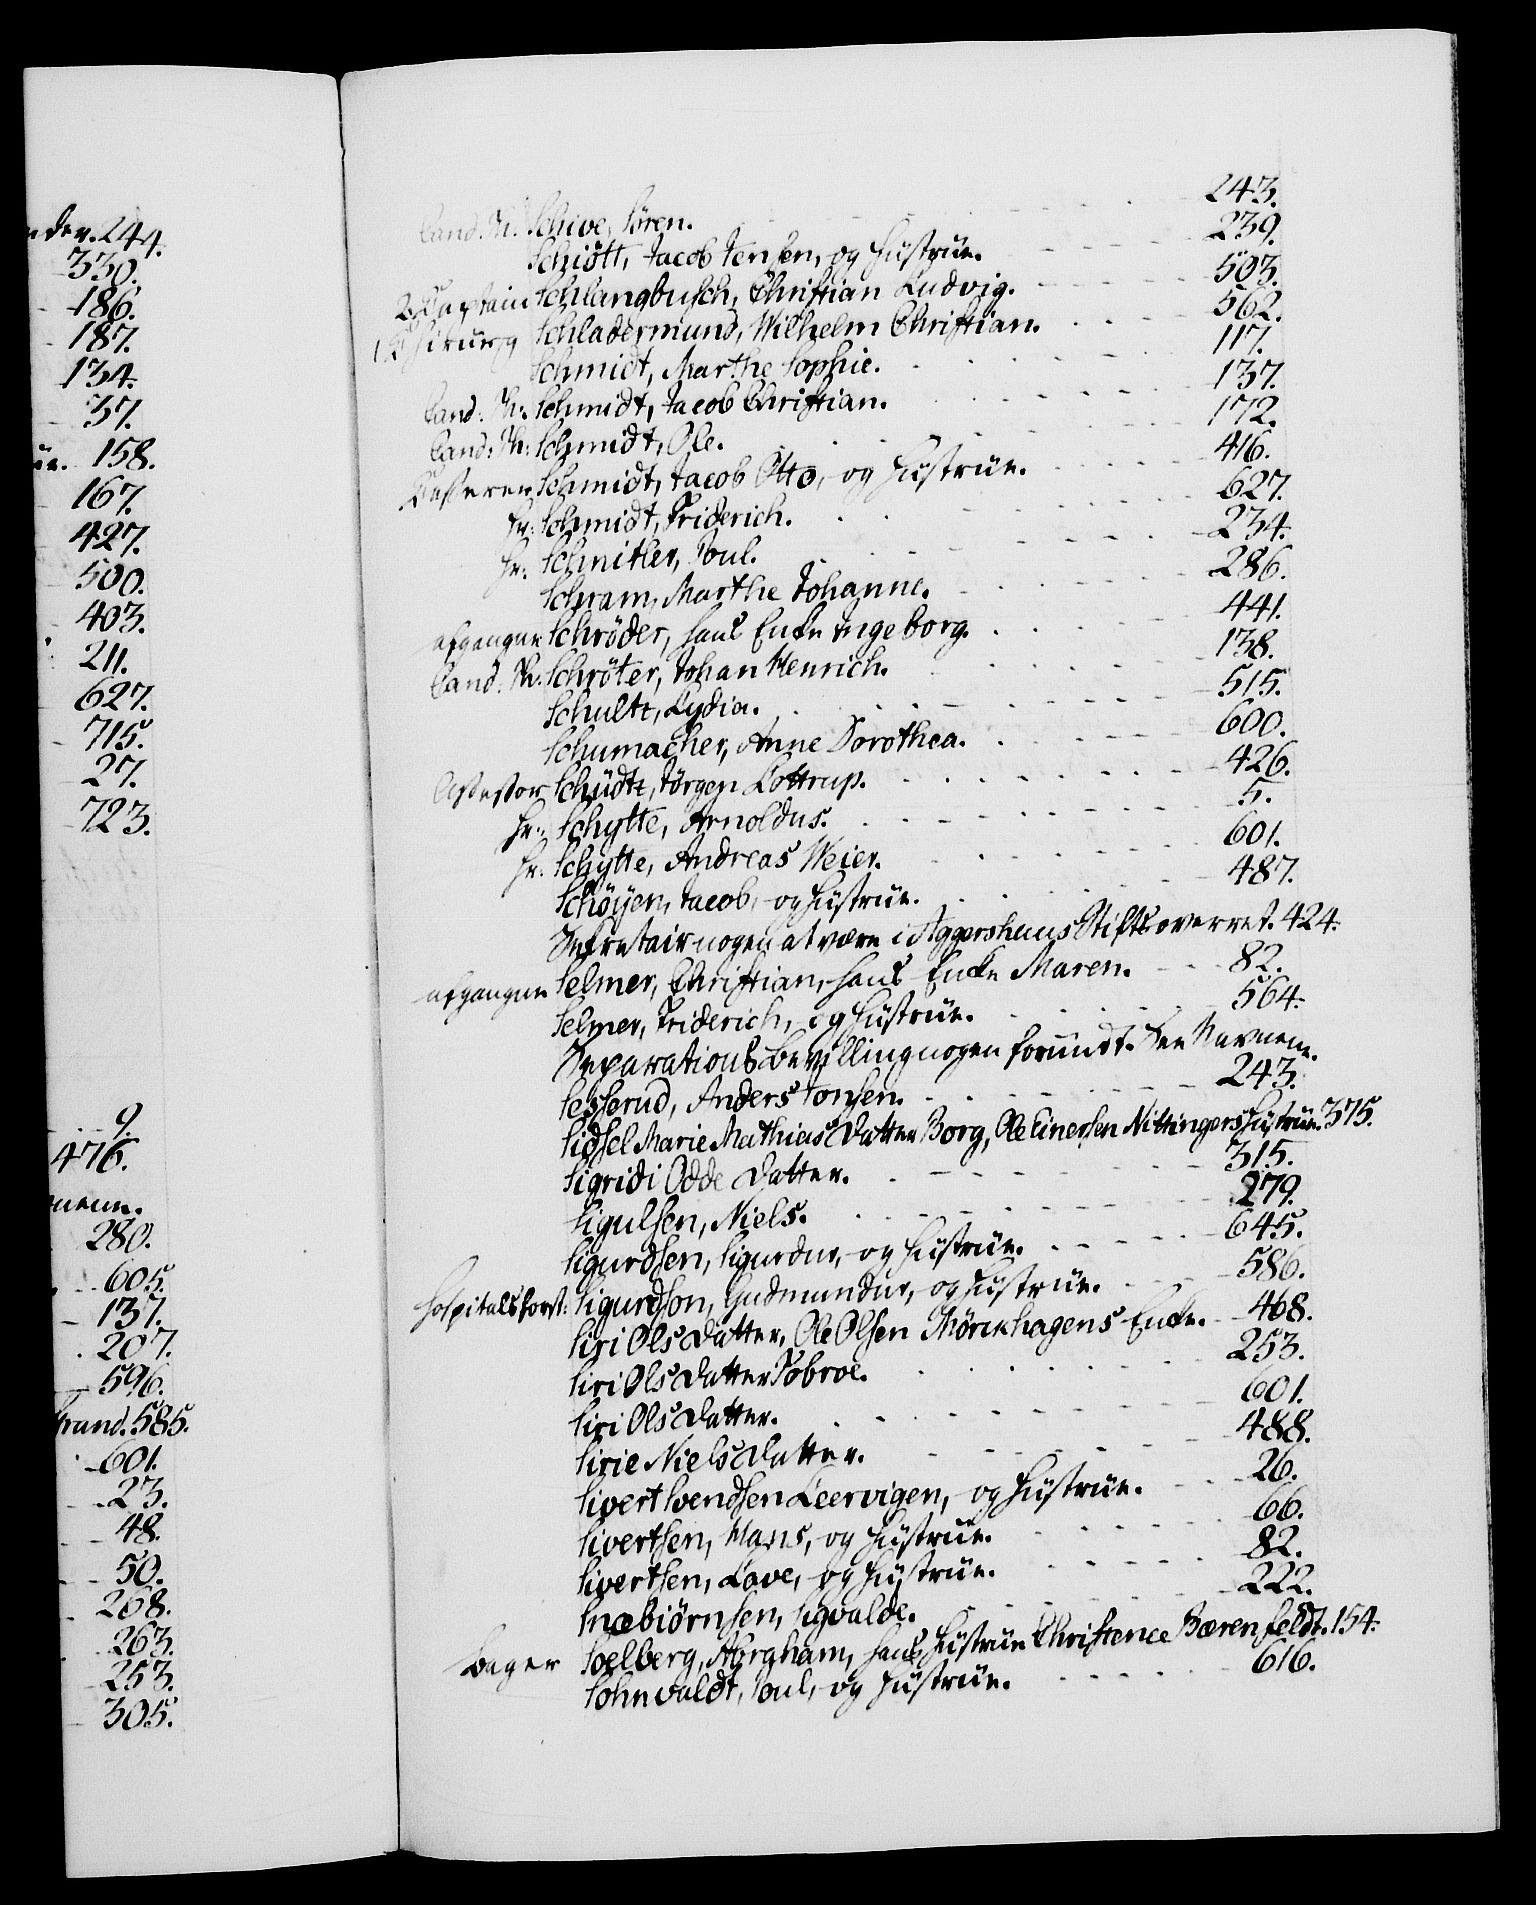 nder. 244.
330.
186.
187.
134.
37.
ue. 158.
167.
427.
500.
403.
211.
627.
715.
27.
723.
9.
476.
nenn.
280.
605.
137.
207.
596.
Strand. 585.
601.
23.
48.
50.
268.
263.
253.
305.
Cand. Th. Schive, Sören. 243.
Schiött, Jacob Jensen, og Hustrue. 239.
2. Captain Schlangbusch, Christian Ludvig. 503.
Chirurg Schladermund, Wilhelm Christian. 562.
Schmidt, Marthe Sophie. 117.
Cand: Th: Schmidt, Jacob Christian. 137.
Cand: Th: Schmidt, Ole. 172.
Kasserer Schmidt, Jacob Otto, og Hustrue. 416.
Hr: Schmidt, Friderich. 627.
Hr: Schnitler, Poul. 234.
Schram, Marthe Johanne. 286.
afgangne Schröder, hans Encke Ingeborg. 441.
Cand: Th. Schröter, Johan Henrich. 138.
Schultz, Lydia. 515.
Schumacher, Anne Dorothea. 600.
Assessor Schüdtz, Jörgen Lottrup. 426.
Hr: Schytte, Arnoldus. 5.
Hr: Schytte, Andreas Meier. 601.
Schöyen, Jacob, og Hustrue. 487.
Secretair nogen at være i Aggershuus Stiftsoverret. 424.
afgangne Selmer, Christian, hans Encke Maren. 82.
Selmer, Friderich, og Hustrue. 564.
Separations Bevilling nogen forundt. See Navnene.
Sesserud, Anders Jonsen. 243.
Sidsel Marie Mathias Datter Borg, Ole Einersen Nittingers Hustrue. 375.
Sigridi Odde Datter. 315.
Sigulsen, Niels. 279.
Sigurdsen, Sigurdur, og Hustrue. 645.
Hospitalsforst: Sigurdson, Gudmundur, og Hustrue. 586.
Siri Ols Datter, Ole Olsen Mörckhagens Encke. 468.
Siri Ols Datter Fobroe. 253.
Siri Ols Datter. 601.
Sirie Niels Datter. 488.
Sivert Svendsen Leervigen, og Hustrue. 26.
Sivertsen, Hans, og Hustrue. 66.
Sivertsen, Lave, og Hustrue. 82.
Snæbiörnsen, Sigvalde. 222.
Bager Soelberg, Abrgham, hans Hustrue Christence Bærenfeldt. 154.
Sohnvaldt, Poul, og Hustrue. 616.